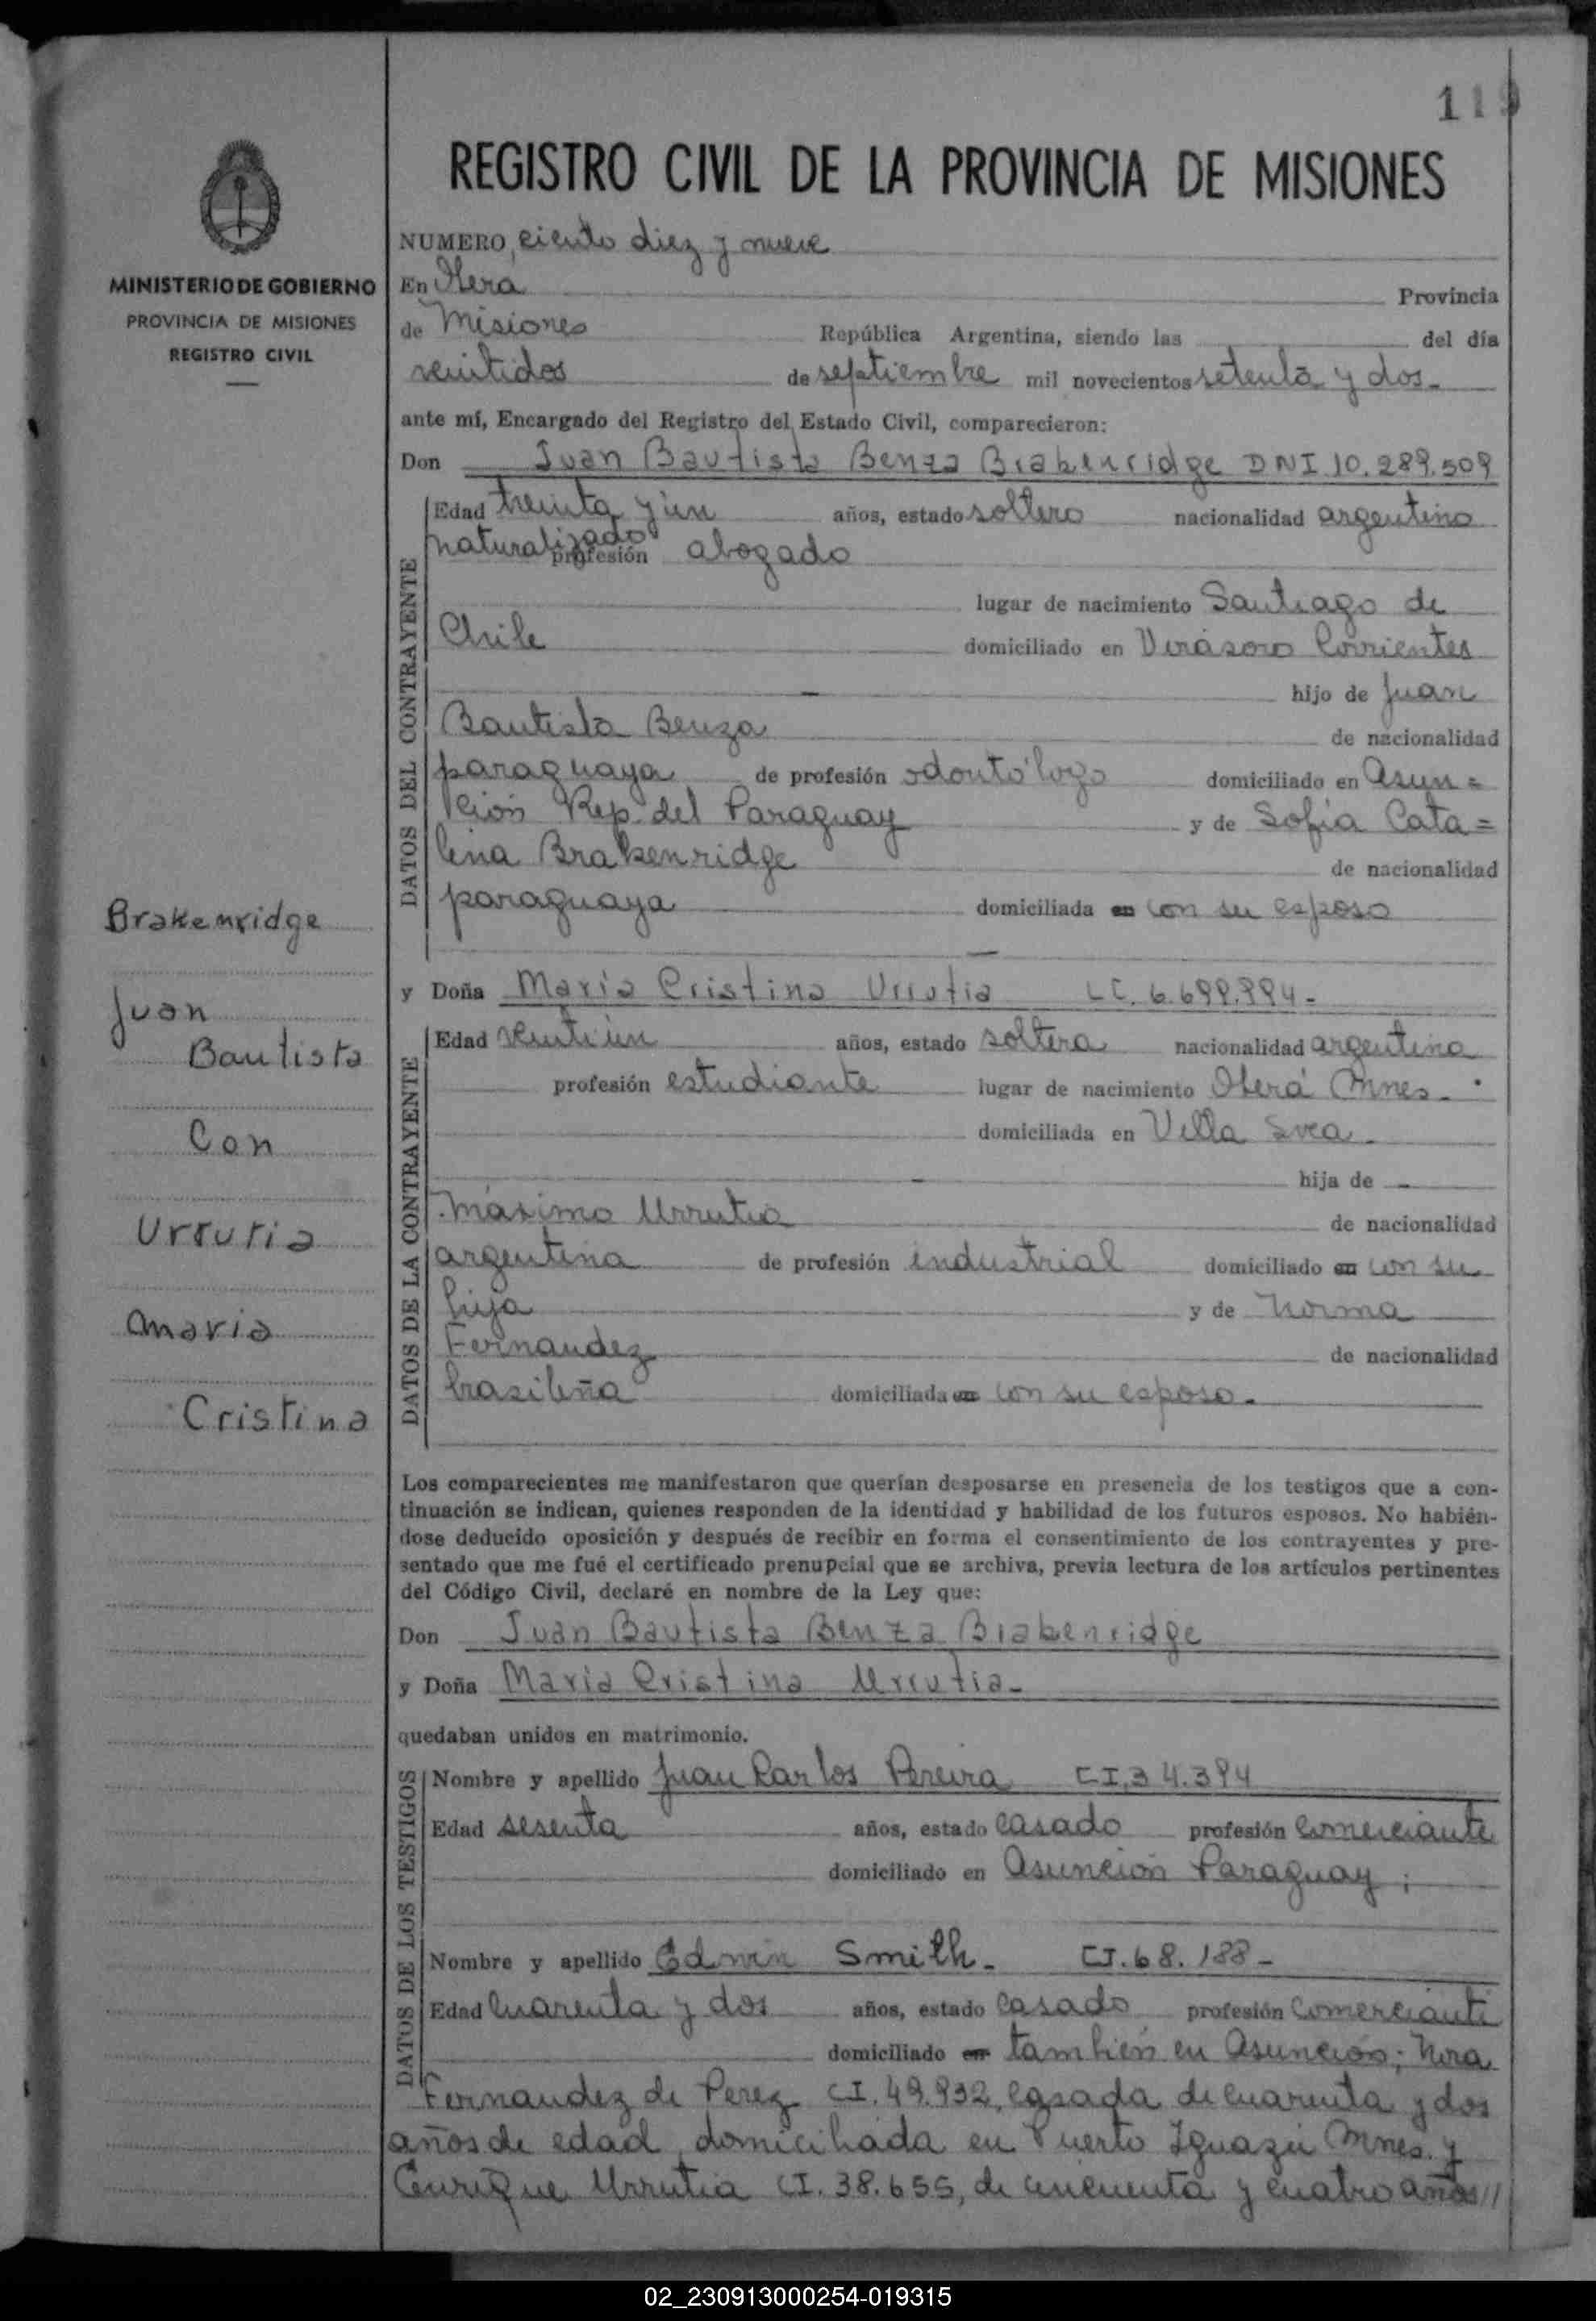 119
REGISTRO CIVIL DE LA PROVINCIA DE MISIONES
MINISTERIO DE GOBIERNO
PROVINCIA DE MISIONES
REGISTRO CIVIL
Brakenridge
Juan
Bautista
Con
Urrutia
Maria
Cristina
NUMERO, ciento diez y nueve
En Oberá Provincia
de Misiones República Argentina, siendo las del día
veintidos de septiembre mil novecientos setenta y dos-
ante mí, Encargado del Registro del Estado Civil, comparecieron:
Don Juan Bautista Benza Brakenridge DNI 10.289.509
DATOS DEL CONTRAYENTE
Edad treinta y un años, estado soltero nacionalidad argentino
naturalizado profesión abogado
lugar de nacimiento Santiago de
Chile domiciliado en Virásoro Corrientes
hijo de Juan
Bautista Benza de nacionalidad
paraguaya de profesión odontólogo domiciliado en Asun=
ción Rep. del Paraguay y de Sofía Cata=
lina Brakenridge de nacionalidad
paraguaya domiciliada en con su esposo
y Doña María Cristina Urrutia LC. 6.699.994-
DATOS DE LA CONTRAYENTE
Edad veintiún años, estado soltera nacionalidad argentina
profesión estudiante lugar de nacimiento Oberá Mnes.
domiciliada en Villa Svea.
hija de -
Máximo Urrutia de nacionalidad
argentina de profesión industrial domiciliado en con su
hija y de Norma
Fernandez de nacionalidad
brasileña domiciliada en con su esposo.
Los comparecientes me manifestaron que querían desposarse en presencia de los testigos que a con-
tinuación se indican, quienes responden de la identidad y habilidad de los futuros esposos. No habién-
dose deducido oposición y después de recibir en forma el consentimiento de los contrayentes y pre-
sentado que me fué el certificado prenupcial que se archiva, previa lectura de los artículos pertinentes
del Código Civil, declaré en nombre de la Ley que:
Don Juan Bautista Benza Brakenridge
y Doña María Cristina Urrutia-
quedaban unidos en matrimonio.
DATOS DE LOS TESTIGOS
Nombre y apellido Juan Carlos Pereira CI.34.394
Edad sesenta años, estado casado profesión comerciante
domiciliado en Asunción Paraguay;
Nombre y apellido Edwin Smith- CI.68.188-
Edad cuarenta y dos años, estado casado profesión comerciante
domiciliado en también en Asunción; Nora
Fernandez de Perez CI.49.932, casada de cuarenta y dos
años de edad, domiciliada en Puerto Iguazú Mnes. y
Enrique Urrutia CI.38.655, de cincuenta y cuatro años//
02_230913000254-019315